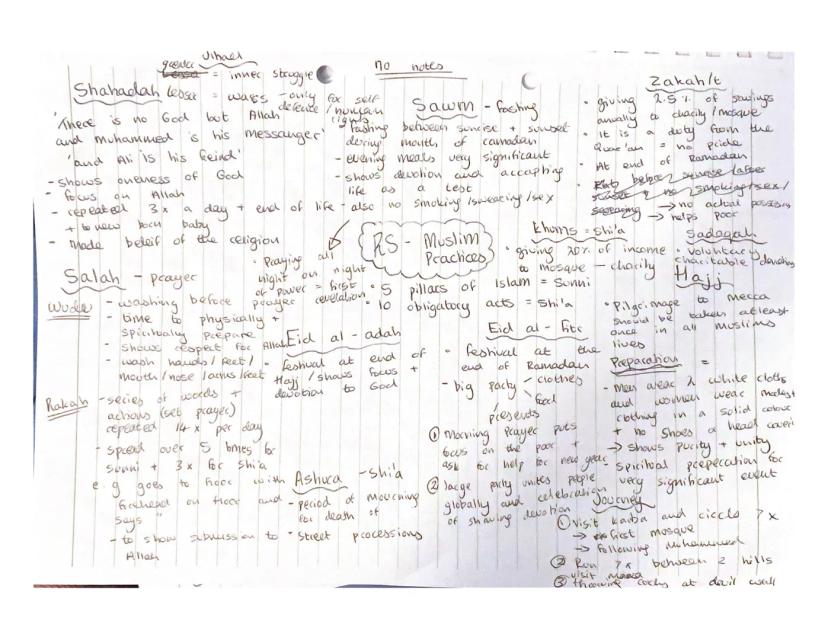 Jihad
greater = inner struggle
lesser = wars - only for self
defence / human
rights
no notes
Shahadah
'There is no God but Allah
and Muhammed is his messanger'
'and Ali is his freind'
- shows oneness of God
- focus on Allah
- repeated 3x a day + end of life
+ to new born baby
- Made beleif of the religion
Sawm - fasting
- fasting between sunrise + sunset
during mouth of ramadan
- evening meals very significant
- shows devotion and accepting
life as a test
- also no smoking/swearing/sex
Zakah/t
• giving 2.5% of savings
anually to charity/mosque
• It is a duty from the
Qur'an = no pride
• At end of Ramadan
→ no actual
→ helps poor
RS - Muslim
Practices
• 5 pillars of Islam = Sunni
• 10 obligatory acts = Shi'a
• Praying all
night on night
of power = first
revelation
Khums = Shi'a
• giving 20% of income
to mosque - charity
Sadaqah
• voluntary
charitable
Hajj
• Pilgrimage to mecca
should be taken atleast
once in all muslims
lives
Preparation =
- Men wear 2 white cloths
and women wear modest
clothing in a solid colour
+ no shoes a head
→ shows purity + unity
- Spiritual preperation for
very significant event
Journey
① Visit kaaba and circle 7x
→ first mosque
→ following muhammed
② Run 7x between 2 hills
visit
③ throwing rocks at devil wall
Salah - prayer
Wudu
- washing before prayer
- time to physically +
spiritually prepare
- shows respect for Allah
- wash hands/feet/
mouth/nose/arms/feet
Rakah
- series of words +
actions (set prayer)
repeated 14x per day
- spread over 5 times for
Sunni + 3x for Shi'a
e.g goes to floor with
forehead on floor and
says "
- to show submission to
Allah
Eid al-adah
• festival at end of
Hajj / shows focus +
devotion to God
Eid al-fitr
• festival at the
end of Ramadan
- big party - clothes
- food
presends
① Morning prayer puts
focus on the poor +
ask for help for new year
② large party unites people
globally and celebration
of devotion
Ashura - Shi'a
- period of mourning
for death of
- street processions